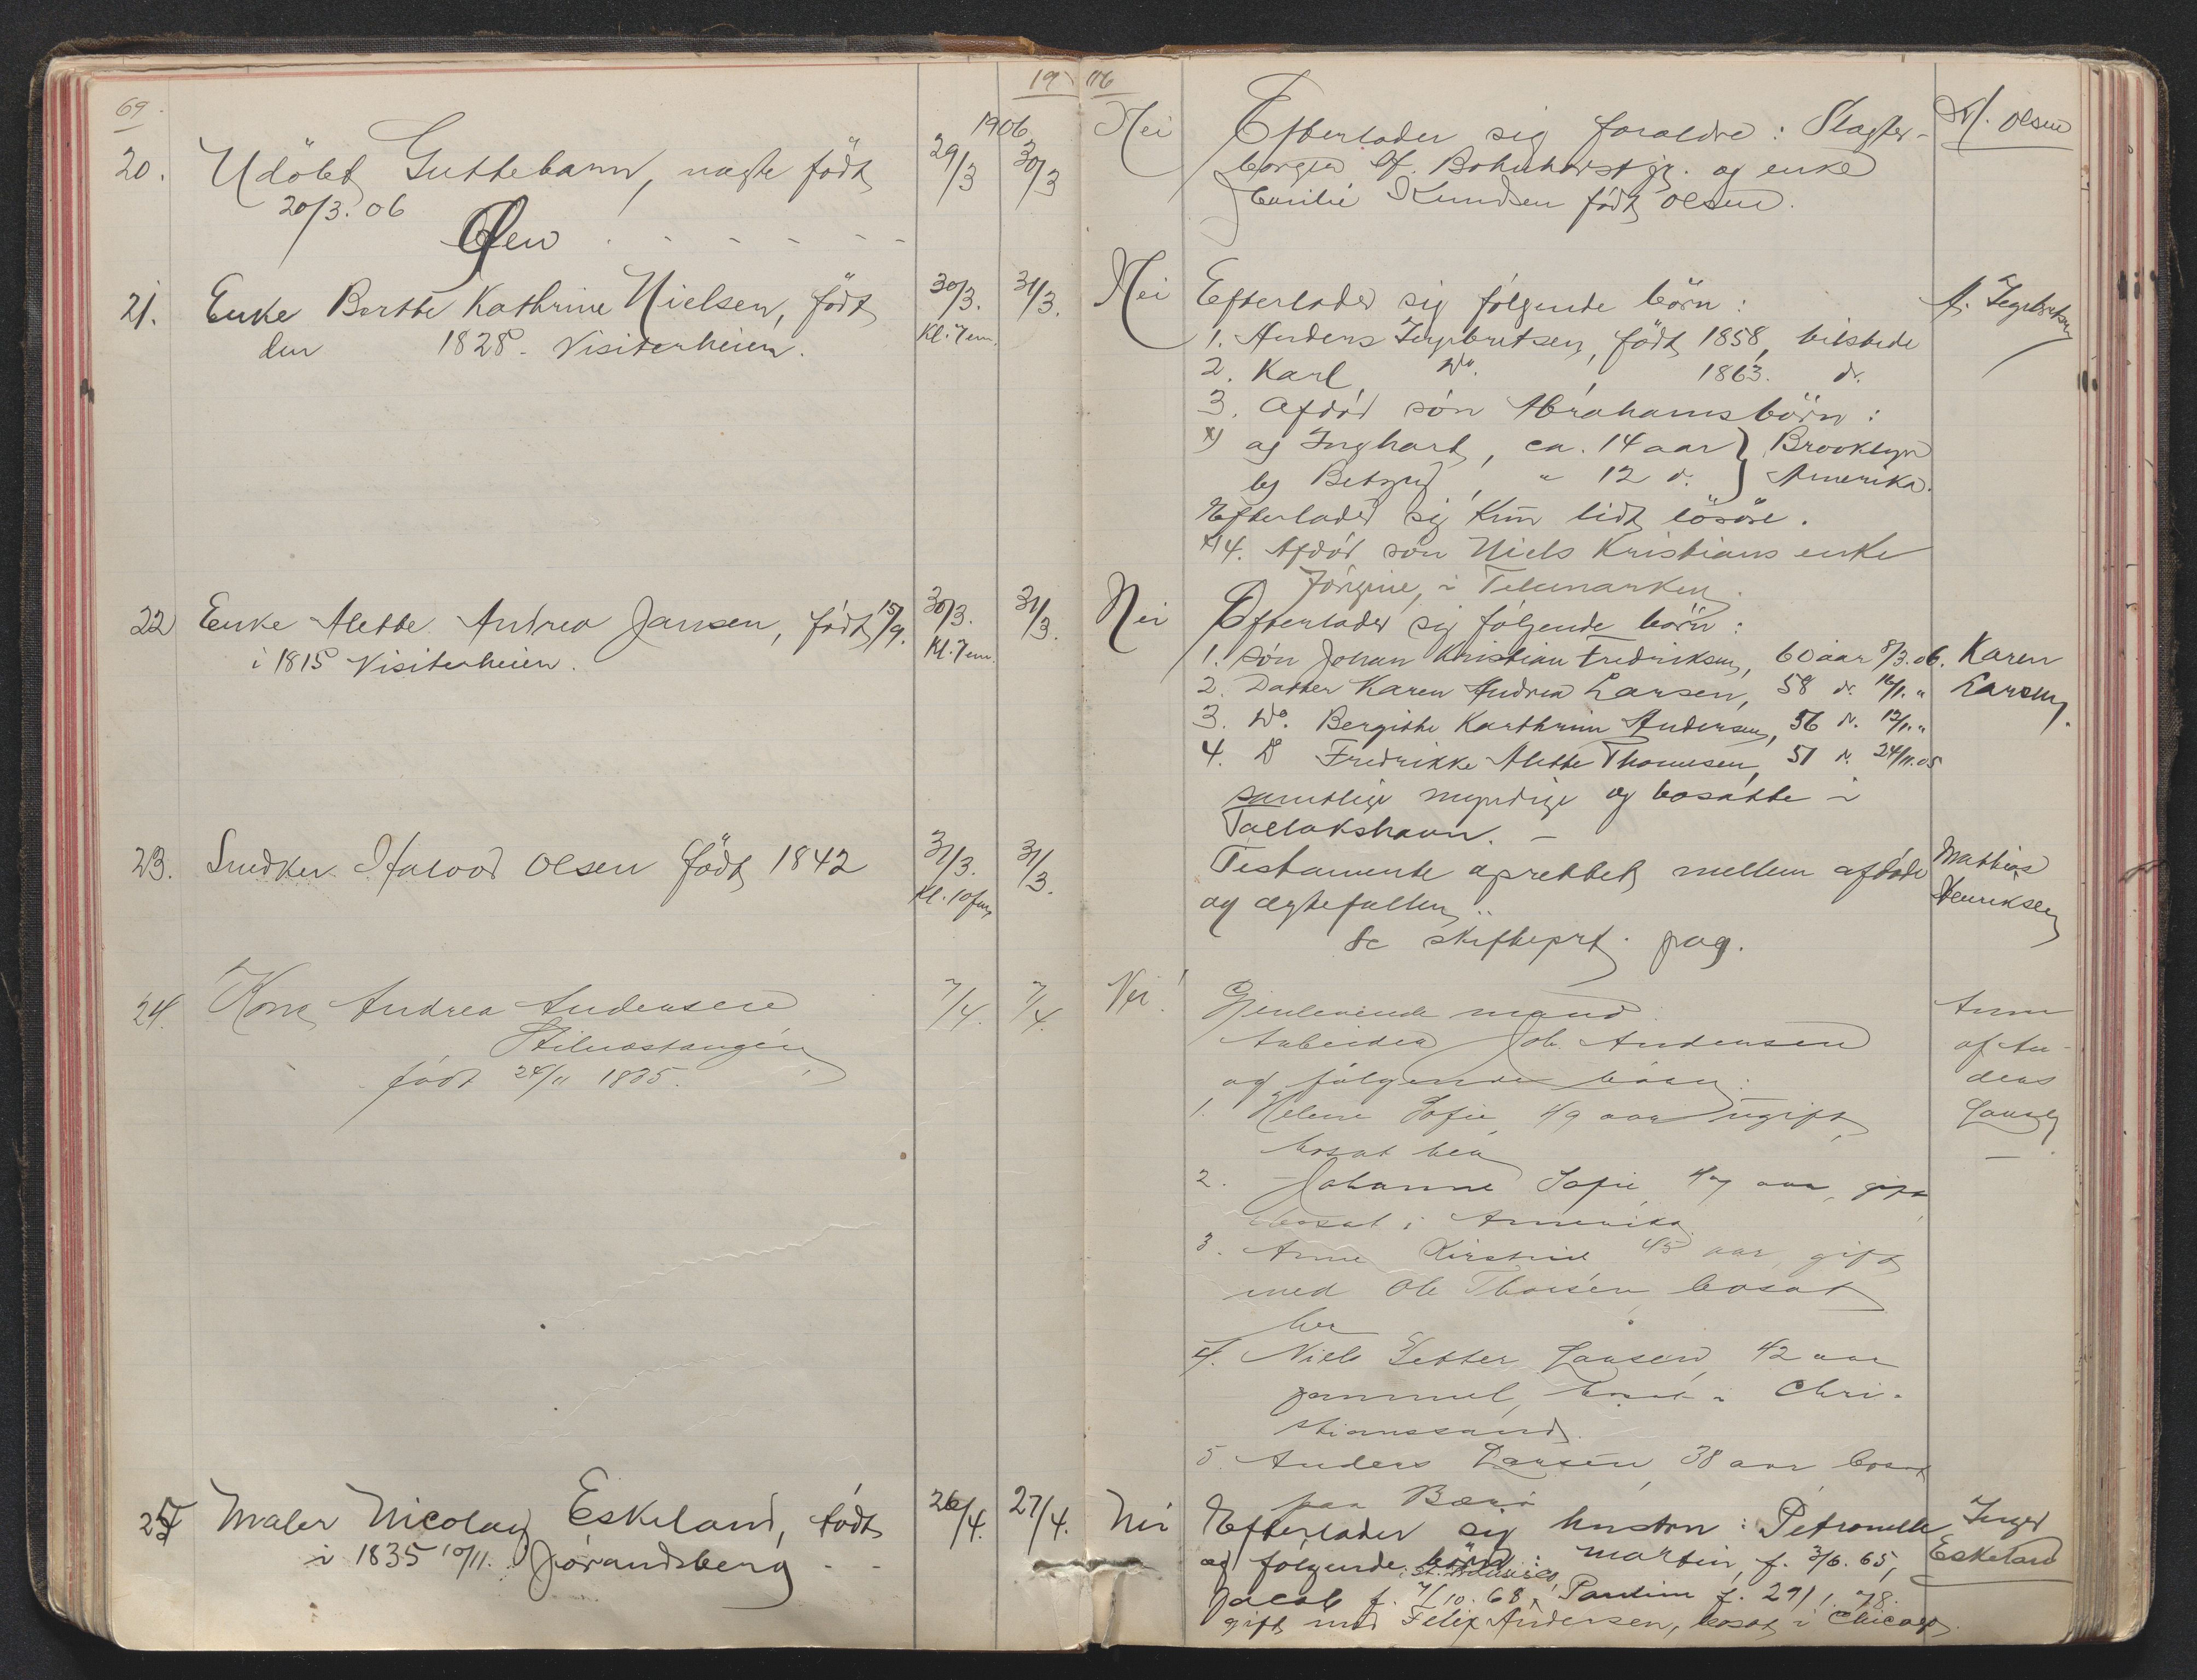 1906
69.
1906
20. Udöbt Guttebarn, uægte födt 29/3 30/3 Nei
20/3. 06
Øen
Efterlader sig foræld­re: Slagter-
borger Bohnhorst jr. og enke
Knudsen födt Olsen.
M. Olsen
21. Enke Berthe Kathrine Nielsen, födt 30/3. 31/3. Nei
den 1828. Visiterheien. Kl. 7 em.
Efterlader sig fölgende börn:
1. Anders Ingebretsen, födt 1858, tilstede
2. Karl Do. 1863. do.
3. Afdöd sön Abrahams börn:
x) a) Inghart, ca. 14 aar } Brooklyn
b) Betzy, " 12 d. } Amerika.
Efterlader sig kun lidt lösöre.
x) 4. Afdöd sön Niels Kristians enke
Jörgine, i Telemarken.
A. Ingebretsen
22 Enke Alette Andrea Jansen, födt 15/9. 30/3. 31/3. Nei
i 1815 Visiterheien. Kl. 7 em.
Efterlader sig fölgende börn:
1. Sön Johan Kristian Fredriksen, 60 aar 8/3. 06.
2. Datter Karen Andrea Larsen, 58 d. 16/1. "
3. Do. Bergithe Karthrine Andersen, 56 d. 12/1. "
4. D Fredrikke Alette Thomesen, 51 d. 24/11. 05
samtlige myndige og bosatte i
Tallakshavn. -
Karen
Larsen.
23. Snedker Halvor Olsen födt 1842 31/3. 31/3.
Kl. 10 fm
Testamente oprettet mellem afdöde
og ægtefællen
Se skifteprt. pag.
Mathias
Henriksen
24. Kone Andrea Andersen 7/4. 7/4. Nei!
födt 24/11 1835.
Gjenlevende mand
Arbeider Joh. Andersen
og fölgende börn:
1. Helene Sofie, 49 aar ugift,
bosat her
2. Johanne Sofie, 47 aar, gift,
bosat i Amerika
3. Anne Kirstine 45 aar, gift
med Ole Thorsen bosat
her
4. Niels Petter Larsen, 42 aar
gammel, bosat i Chri-
stianssand.
5. Anders Larsen, 38 aar bosat
paa
Anm
af An-
ders
Larsen
25 Maler Nicolay Eskeland, födt 26/4. 27/4. Nei
i 1835 10/11. Jörandsberg
Efterlader sig hustru: Petronelle
og fölgende börn: Martin, f. 3/6. 65,
Jacob f. 7/10. 68, Pauline f. 27/1. 78.
gift med Felix Andersen, bosat i Chicago.
Inger
Eskeland